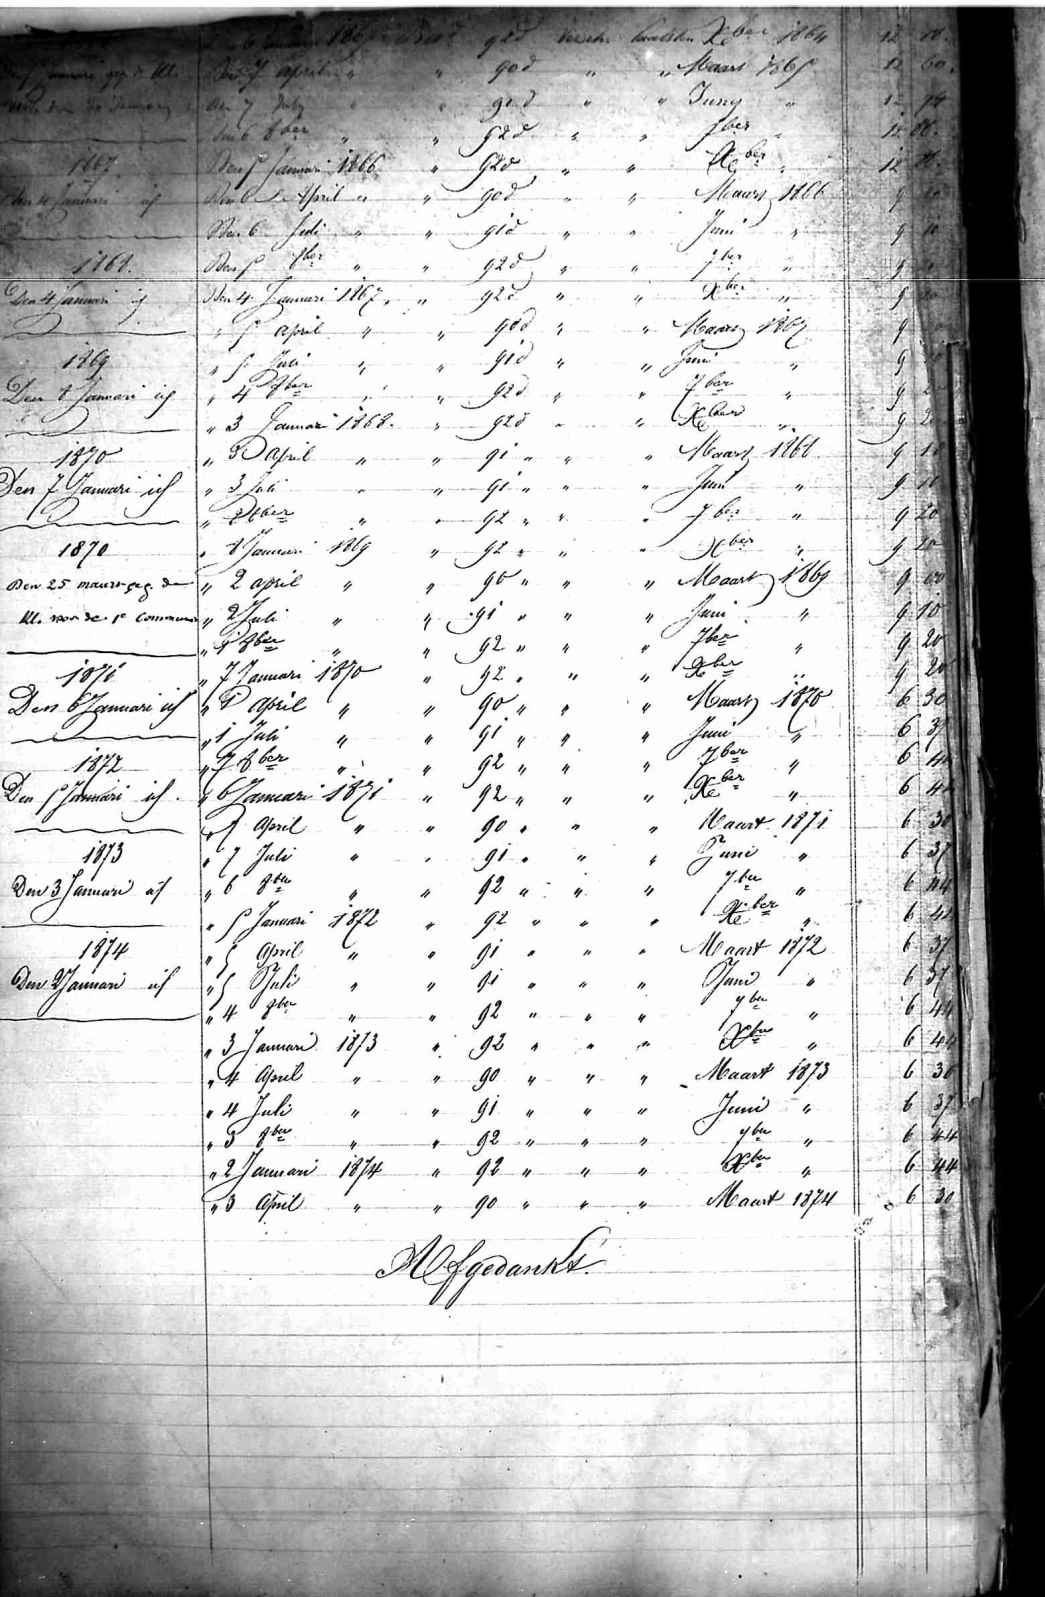 1865 92d Xber 1864 12
Den 7 April " " 90d " " Maart 1865 12 60
Den 7 July " " 91d " " Juny "
Den 6 8ber " " 92d " " 7ber "
1867
Den 5 Januari 1866 " 92d " " Xber " 12
Den 4 Januari ich
Den 6 April " " 90d " " Maart 1866 9
Den 6 Juli " " 91d " " Juni " 9 10
1868.
Den 5 8ber " " 92d " " 7ber " 9
Den 4 Januari ich
Den 4 Januari 1867. " 92d " " Xber " 9
" 5 April " " 90d " " Maart 1867 9
1869
" 5 Juli " " 91d " " Juni " 9
Den 8 Januari ich
" 4 8ber " " 92d " " 7ber " 9
" 3 Januari 1868. " 92d " " Xber " 9 20
1870
" 3 April " " 91 " " " Maart 1868 9 10
Den 7 Januari ich
" 3 Juli " " 91 " " " Juni " 9 10
" 2 8ber " " 92 " " " 7ber " 9 20
1870
" 8 Januari 1869 " 92 " " " Xber " 9 20
Den 25 maart geg. de
" 2 april " " 90 " " " Maart 1869 9 00
kl. voor de 1e commun
" 2 Juli " " 91 " " " Juni " 9 10
" 1 8ber " " 92 " " " 7ber " 9 20
1871
" 7 Januari 1870 " 92 " " " Xber " 9 20
Den 6 Januari ich
" 1 April " " 90 " " " Maart 1870 6 30
" 1 Juli " " 91 " " " Juni " 6 37
1872
" 7 8ber " " 92 " " " 7ber " 6 44
Den 5 Januari ich.
" 6 Januari 1871 " 92 " " " Xber " 6 44
" 7 April " " 90 " " " Maart 1871 6 30
1873
" 7 Juli " " 91 " " " Juni " 6 37
Den 3 Januari ich
" 6 8ber " " 92 " " " 7ber " 6 44
" 5 Januari 1872 " 92 " " " Xber " 6 44
1874
" 5 April " " 91 " " " Maart 1872 6 37
Den 2 Januari ich
" 5 Juli " " 91 " " " Juni " 6 37
" 4 8ber " " 92 " " " 7ber " 6 44
" 3 Januari 1873 " 92 " " " Xber " 6 44
" 4 April " " 90 " " " Maart 1873 6 30
" 4 Juli " " 91 " " " Juni " 6 37
" 3 8ber " " 92 " " " 7ber " 6 44
" 2 Januari 1874 " 92 " " " Xber " 6 44
" 3 April " " 90 " " " Maart 1874 6 30
Afgedankt.